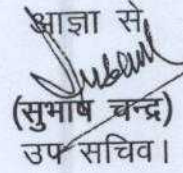 आज्ञा से
(सुभाष चन्द्र)
उप सचिव।